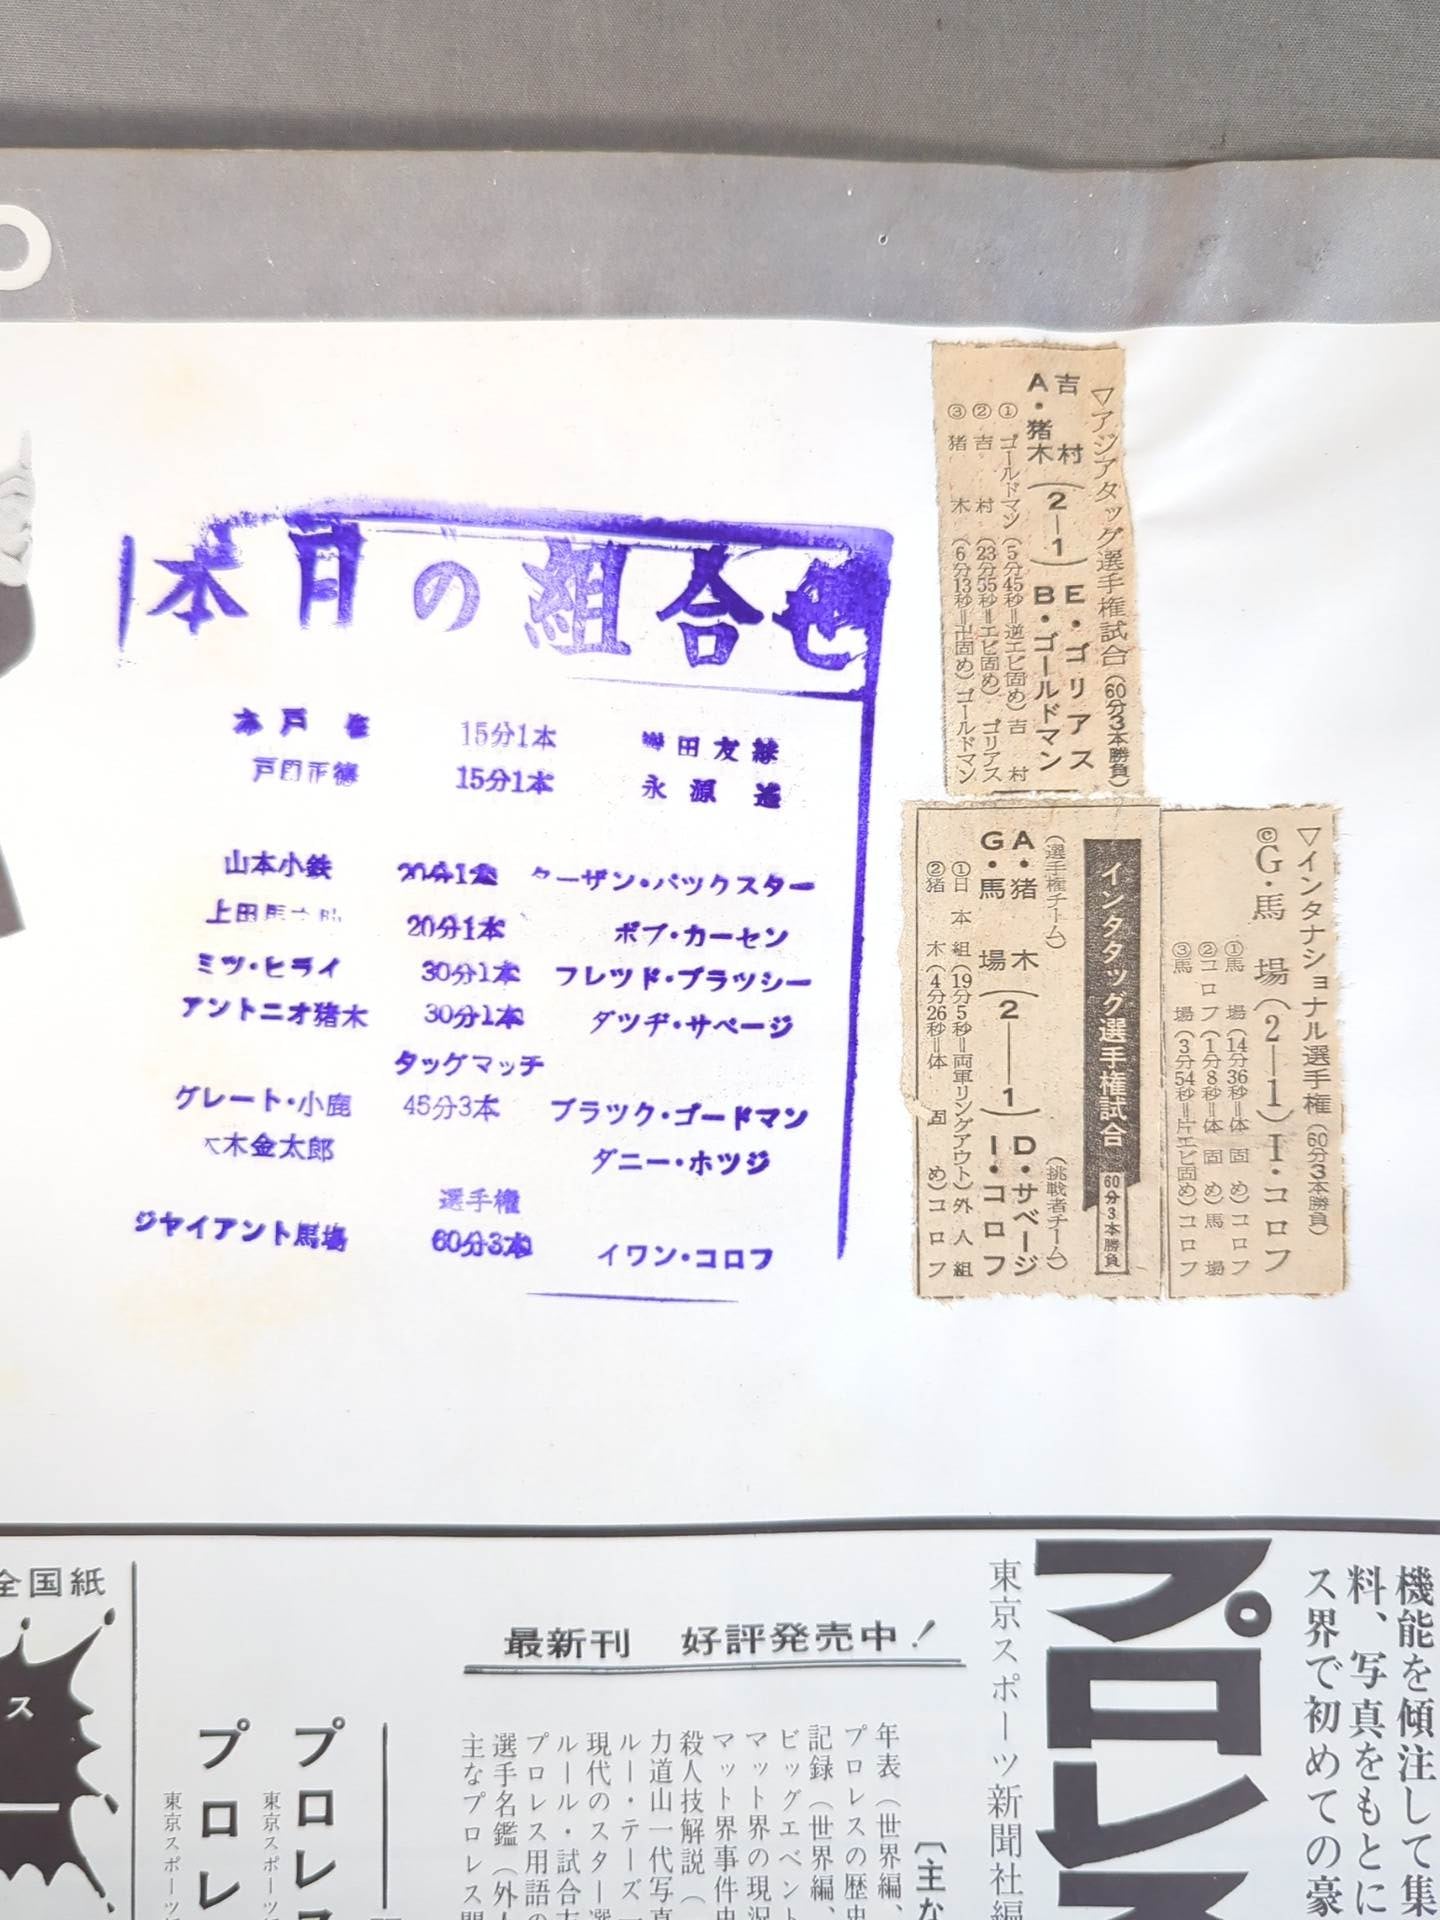 本月の組合せ
木戸 修 15分1本
15分1本 永源 遙
山本小鉄 20分1本 ターザン・バックスター
20分1本 ボブ・カーセン
ミツ・ヒライ 30分1本 フレツド・ブラツシー
アントニオ猪木 30分1本 ダツヂ・サベージ
タッグマッチ
グレート・小鹿 45分3本 ブラツク・ゴードマン
大木金太郎 ダニー・ホツジ
選手権
ジヤイアント馬場 60分3本 イワン・コロフ
▽アジアタッグ選手権試合(60分3本勝負)
吉村 E・ゴリアス
A・猪木(2―1)B・ゴールドマン
①ゴールドマン(5分45秒=逆エビ固め)吉村
②吉村(23分55秒=エビ固め)ゴリアス
③猪木(6分13秒=卍固め)ゴールドマン
▽インタナショナル選手権(60分3本勝負)
©G・馬場(2―1)I・コロフ
①馬場(14分36秒=体固め)コロフ
②コロフ(1分8秒=体固め)馬場
③馬場(3分54秒=片エビ固め)コロフ
インタタッグ選手権試合 60分3本勝負
(選手権チーム) (挑戦者チーム)
A・猪木 D・サベージ
G・馬場(2―1)I・コロフ
①日本組(19分5秒=両軍リングアウト)外人組
②猪木(4分26秒=体固め)コロフ
機能を傾注して集
料、写真をもとに
ス界で初めての豪
プロレス
東京スポーツ新聞社編
最新刊 好評発売中!
〔主な
年表(世界編、
プロレスの歴史
記録(世界編、
ビッグエベント
マット界の現況
マット界事件史
殺人技解説(
力道山一代写真
ルー・テーズ一
現代のスター選
ルール・試合方
プロレス用語の
選手名鑑(外人
主なプロレス関
プロレス
東京スポーツ
プロレ
東京スポーツ
全国紙
ス